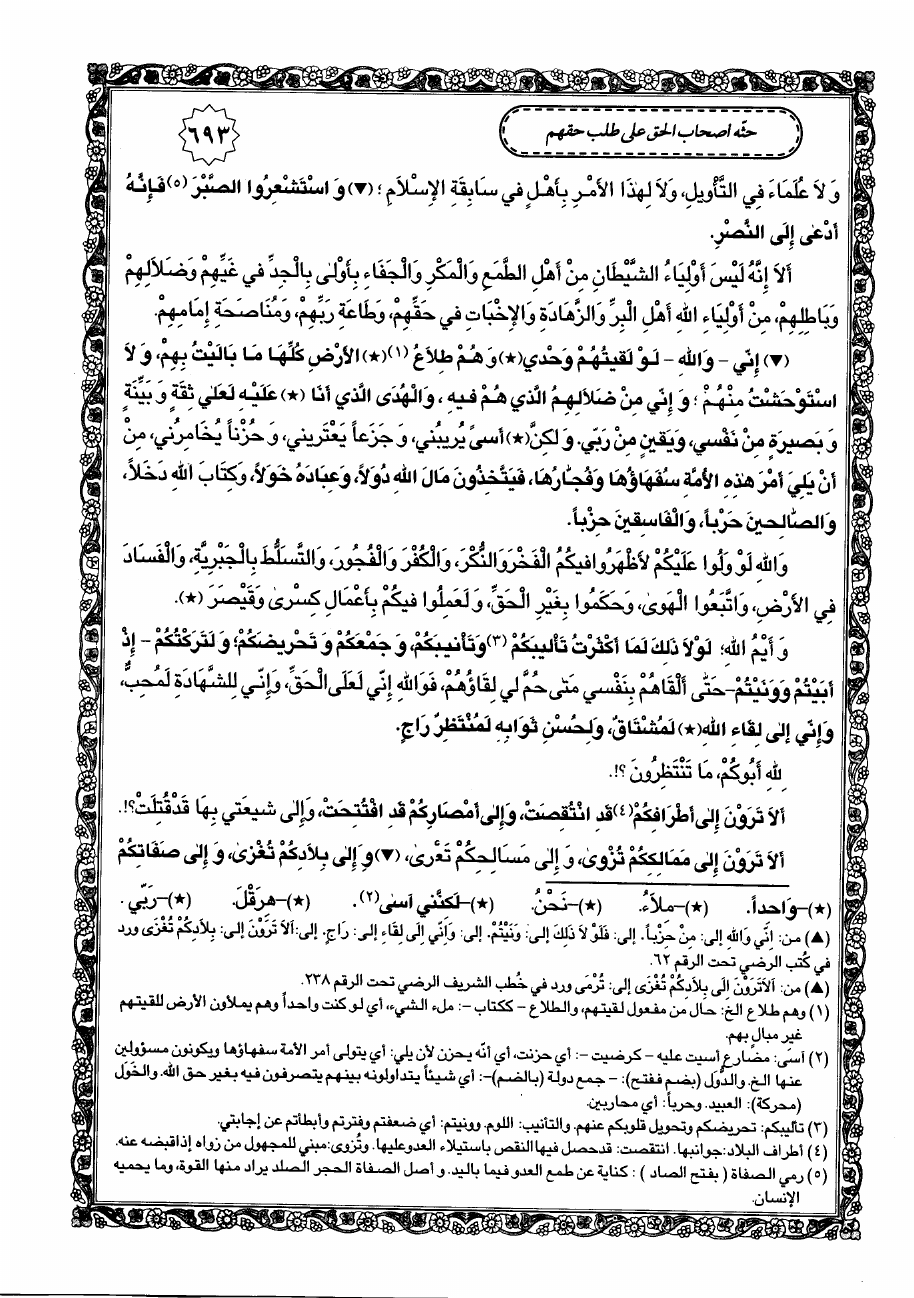 حثّه أصحاب الحق على طلب حقهم
٦٩٣
وَ لاَ عُلَمَاءَ فِي التَّأْوِيلِ، وَلاَ لِهٰذَا الأَمْرِ بِأَهْلٍ في سَابِقَةِ الإِسْلاَمِ ؛ (▼) وَ اسْتَشْعِرُوا الصَّبْرَ (٥) فَإِنَّهُ
أَدْعٰى إِلَى النَّصْرِ.
أَلاَ إِنَّهُ لَيْسَ أَوْلِيَاءُ الشَّيْطَانِ مِنْ أَهْلِ الطَّمَعِ وَالْمَكْرِ وَالْجَفَاءِ بِأَوْلٰى بِالْجِدِّ في غَيِّهِمْ وَضَلاَلِهِمْ
وَبَاطِلِهِمْ، مِنْ أَوْلِيَاءِ اللهِ أَهْلِ الْبِرِّ وَالزَّهَادَةِ وَالإِخْبَاتِ في حَقِّهِمْ، وَطَاعَةِ رَبِّهِمْ، وَمُنَاصَحَةِ إِمَامِهِمْ.
(▼) إِنّي - وَاللهِ - لَوْ لَقيتُهُمْ وَحْدي (★) وَ هُمْ طِلاَعُ (١) (★) الأَرْضِ كُلِّهَا مَا بَالَيْتُ بِهِمْ، وَ لاَ
اسْتَوْحَشْتُ مِنْهُمْ ؛ وَ إِنّي مِنْ ضَلاَلِهِمُ الَّذي هُمْ فيهِ ، وَالْهُدَى الَّذي أَنَا (★) عَلَيْهِ لَعَلٰي ثِقَةٍ وَ بَيِّنَةٍ
وَ بَصيرَةٍ مِنْ نَفْسي، وَيَقينٍ مِنْ رَبّي. وَ لٰكِنَّ (★) أَسىً يُريبُني، وَ جَزَعاً يَعْتَريني، وَ حُزْناً يُخَامِرُني، مِنْ
أَنْ يَلِيَ أَمْرَ هٰذِهِ الأُمَّةِ سُفَهَاؤُهَا وَفُجَّارُهَا، فَيَتَّخِذُونَ مَالَ اللهِ دُوَلاً، وَعِبَادَهُ خَوَلاً، وَكِتَابَ اللهِ دَخَلاً،
وَالصَّالِحينَ حَرْباً، وَالْفَاسِقينَ حِزْباً.
وَاللهِ لَوْ وَلُوا عَلَيْكُمْ لأَظْهَرُوا فيكُمُ الْفَخْرَ وَالنُّكْرَ، وَالْكُفْرَ وَالْفُجُورَ، وَالتَّسَلُّطَ بِالْجَبْرِيَّةِ، وَالْفَسَادَ
فِي الأَرْضِ، وَاتَّبَعُوا الْهَوٰى، وَحَكَمُوا بِغَيْرِ الْحَقِّ، وَ لَعَمِلُوا فيكُمْ بِأَعْمَالِ كِسْرٰى وَقَيْصَرَ (★).
وَ أَيْمُ اللهِ؛ لَوْلاَ ذٰلِكَ لَمَا أَكْثَرْتُ تَأْليبَكُمْ (٣) وَتَأْنيبَكُمْ، وَ جَمْعَكُمْ وَ تَحْريضَكُمْ؛ وَ لَتَرَكْتُكُمْ - إِذْ
أَبَيْتُمْ وَوَنَيْتُمْ - حَتّٰى أَلْقَاهُمْ بِنَفْسي مَتٰى حُمَّ لي لِقَاؤُهُمْ، فَوَاللهِ إِنّي لَعَلَى الْحَقِّ، وَإِنّي لِلشَّهَادَةِ لَمُحِبٌّ،
وَإِنّي إِلٰى لِقَاءِ اللهِ (★) لَمُشْتَاقٌ، وَلِحُسْنِ ثَوَابِهِ لَمُنْتَظِرٌ رَاجٍ.
لِلّٰهِ أَبُوكُمْ، مَا تَنْتَظِرُونَ ؟!.
أَلاَ تَرَوْنَ إِلٰى أَطْرَافِكُمْ (٤) قَدِ انْتُقِصَتْ، وَإِلٰى أَمْصَارِكُمْ قَدِ افْتُتِحَتْ، وَإِلٰى شيعَتي بِهَا قَدْ قُتِلَتْ؟!.
أَلاَ تَرَوْنَ إِلٰى مَمَالِكِكُمْ تُزْوٰى، وَ إِلٰى مَسَالِحِكُمْ تَعْرٰى، (▼) وَ إِلٰى بِلاَدِكُمْ تُغْزٰى، وَ إِلٰى صَفَاتِكُمْ
(★)-وَاحداً. (★)-ملاَءُ. (★)-نَحْنُ. (★)-لَكنَّني آسىٰ (٢). (★)-هرَقْلَ. (★)-رَبّي.
(▲) من: انّي وَالله إلى: منْ حزْباً. إلى: فَلَوْ لاَ ذَلكَ إلى: وَنَيْتُمْ. إلى: وَإنّي إلى لقَاء إلى: رَاج. إلى: ألاَ تَرَوْنَ إلى: بلاَدكُمْ تُغْزى ورد
في كُتب الرضي تحت الرقم ٦٢.
(▲) من: ألاَ تَرَوْنَ إلَى بلاَدكُمْ تُغْزَى إلى: تُرْمَى ورد في خُطب الشريف الرضي تحت الرقم ٢٣٨.
(١) وهم طلاع الخ: حال من مفعول لقيتهم، والطلاع - ككتاب -: ملء الشيء، أي لو كنت واحداً وهم يملأون الأرض للقيتهم
غير مبالٍ بهم.
(٢) آسىٰ: مضارع أسيت عليه - كرضيت -: أي حزنت، أي أنّه يحزن لأن يلي: أي يتولى أمر الأمة سفهاؤها ويكونون مسؤولين
عنها الخ. والدُّوَل (بضم ففتح): - جمع دولة (بالضم)-: أي شيئاً يتداولونه بينهم يتصرفون فيه بغير حق الله. والخَوَل
(محركة): العبيد. وحرباً: أي محاربين.
(٣) تأليبكم: تحريضكم وتحويل قلوبكم عنهم. والتأنيب: اللوم. وونيتم: أي ضعفتم وفترتم وأبطأتم عن إجابتي.
(٤) أطراف البلاد: جوانبها. انتقصت: قد حصل فيها النقص باستيلاء العدو عليها. وتُزوى: مبني للمجهول من زواه إذا قبضه عنه.
(٥) رمي الصفاة ( بفتح الصاد ) : كناية عن طمع العدو فيما باليد. و أصل الصفاة الحجر الصلد يراد منها القوة، وما يحميه
الإنسان.